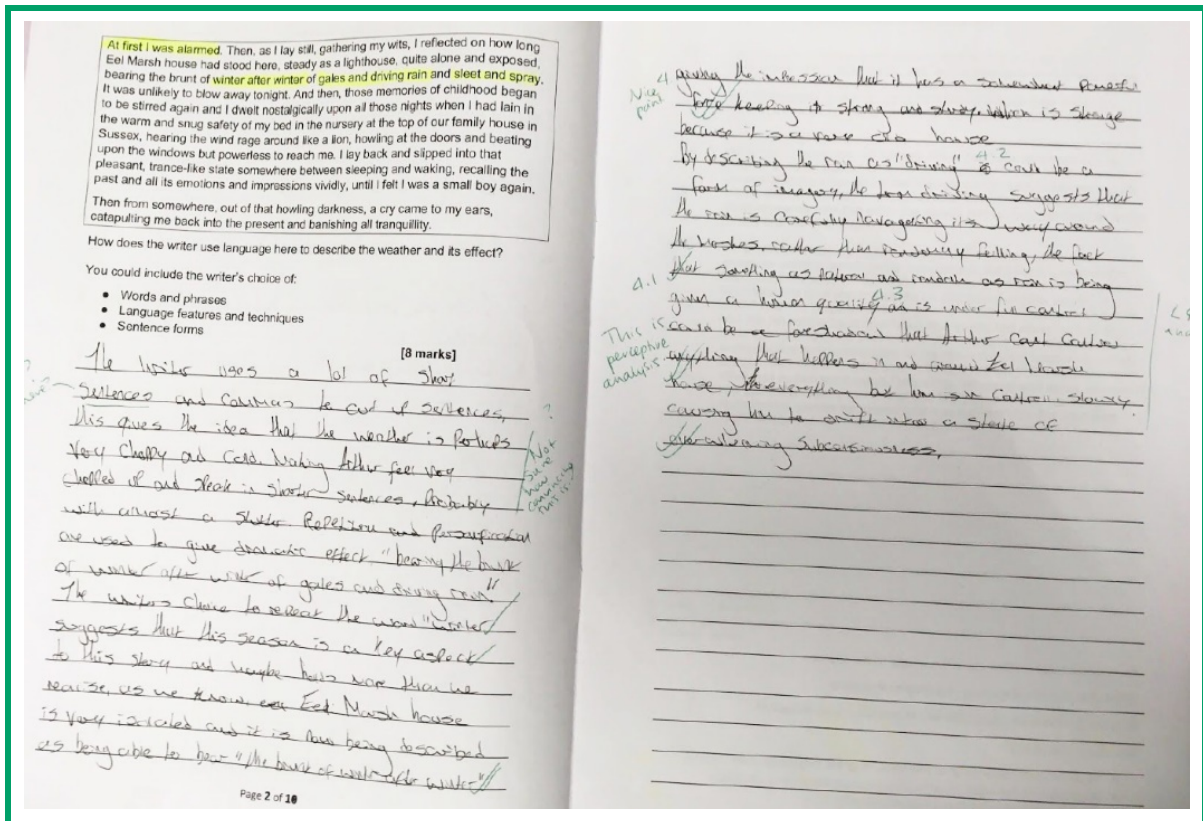 At first I was alarmed. Then, as I lay still, gathering my wits, I reflected on how long
Eel Marsh house had stood here, steady as a lighthouse, quite alone and exposed,
bearing the brunt of winter after winter of gales and driving rain and sleet and spray.
It was unlikely to blow away tonight. And then, those memories of childhood began
to be stirred again and I dwelt nostalgically upon all those nights when I had lain in
the warm and snug safety of my bed in the nursery at the top of our family house in
Sussex, hearing the wind rage around like a lion, howling at the doors and beating
upon the windows but powerless to reach me. I lay back and slipped into that
pleasant, trance-like state somewhere between sleeping and waking, recalling the
past and all its emotions and impressions vividly, until I felt I was a small boy again.
Then from somewhere, out of that howling darkness, a cry came to my ears,
catapulting me back into the present and banishing all tranquillity.
How does the writer use language here to describe the weather and its effect?
You could include the writer's choice of:
• Words and phrases
• Language features and techniques
• Sentence forms
[8 marks]
The writer uses a lot of short
sentences and commas to cut up sentences,
this gives the idea that the weather is perhaps
very choppy and cold. Making Arthur feel very
chopped up and speak in shorter sentences, probably
with almost a stutter. Repetition and personification
are used to give dramatic effect. "bearing the brunt
of winter after winter of gales and driving rain"
The writers choice to repeat the word "winter"
suggests that this season is a key aspect
to this story and maybe has more than we
realise, as we know Eel Marsh house
is very isolated and it is now being described
as being able to bear "the brunt of winter after winter"
?
Not sure how convincing this is.
Page 2 of 10
4
Nice point
giving the impression that it has a powerful
force keeping it strong and sturdy, which is strange
because it is a house
By describing the rain as "driving" could be a
4.2
form of imagery, the driving suggests that
the rain is carefully its way around
the rather than randomly falling, the fact
4.1
that something as natural and as rain is being
given a human quality is under control
4.3
This is perceptive analysis
could be a foreshadow that Arthur cant control
anything that happens in and around Eel Marsh
house, everything but him in control. slowly
causing him to drift into a state of